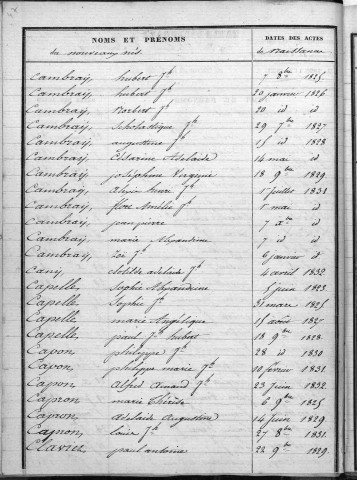 NOMS ET PRÉNOMS DATES DES ACTES
des nouveaux nés. de Naissance
Cambray, hubert fs 7 8bre 1825
Cambray, hubert fs 20 janvier 1826
Cambray, Norbert fs 20 id id
Cambray, Scholastique fs 29 7bre 1827
Cambray, augustine fs 15 id 1828
Cambray, Adelaïde 14 mai id
Cambray, joséphine Virginie 18 9bre 1829
Cambray, fs 1er juillet 1831
Cambray, flore Amélie fs mai id
Cambray, jean pierre 7 id
Cambray, marie Alexandrine 7 id id
Cambray, Zoé fs 6 janvier id
Cany, clotilde adelaide fs 4 avril 1832
Capelle, Sophie Alexandrine 5 juin 1823
Capelle, Sophie fs 31 mars 1825
Capelle, marie Angélique 15 août
Capelle, paul fs hubert 18 9bre 1828
Capon, philippe fs 28 id 1830
Capon, philippe marie fs 10 février 1831
Capon, Alfred Amand fs 23 juin 1832
Capron, marie Thérèse 6 9bre 1825
Capron, adelaide Augustine 14 juin 1829
Capron, louis fs 27 8bre 1831
Clavier, paul antoine 22 9bre 1829